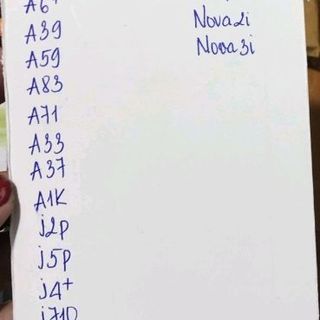 A6+
A39
A59
A83
A71
A33
A37
A1K
j2p
j5p
j4+
Nova2i
Nova3i